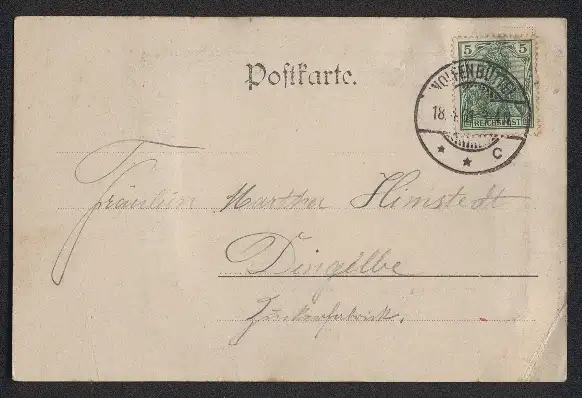 5 5
WOLFENBÜTTEL
Postkarte.
18.
REICHSPOST
* * C
Fräulein Martha Himstedt
Dingelbe
Zuckerfabrik.